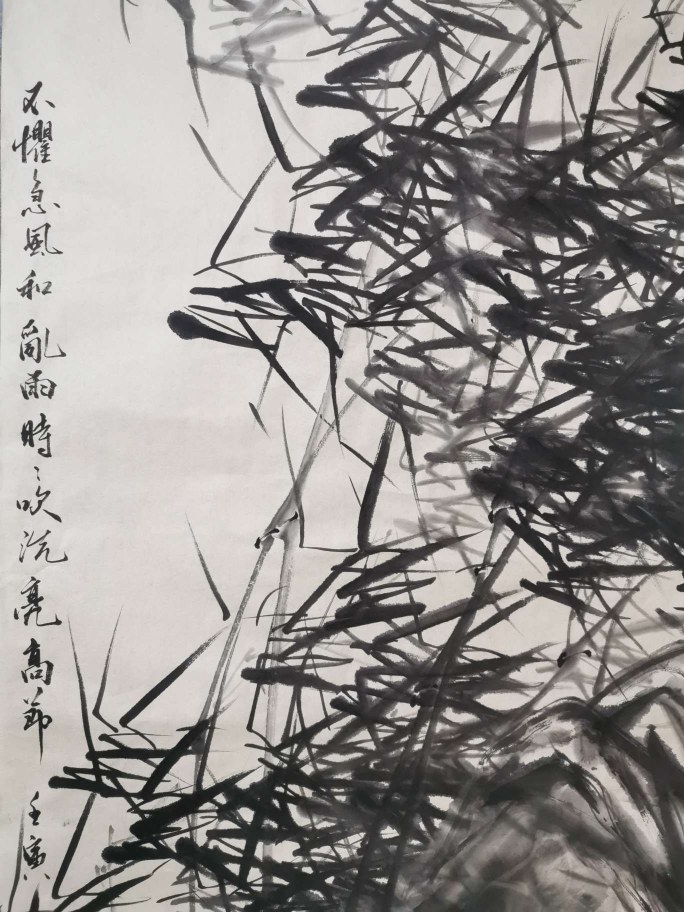 不懼急風和亂雨時〻吹洗亮高節 壬寅